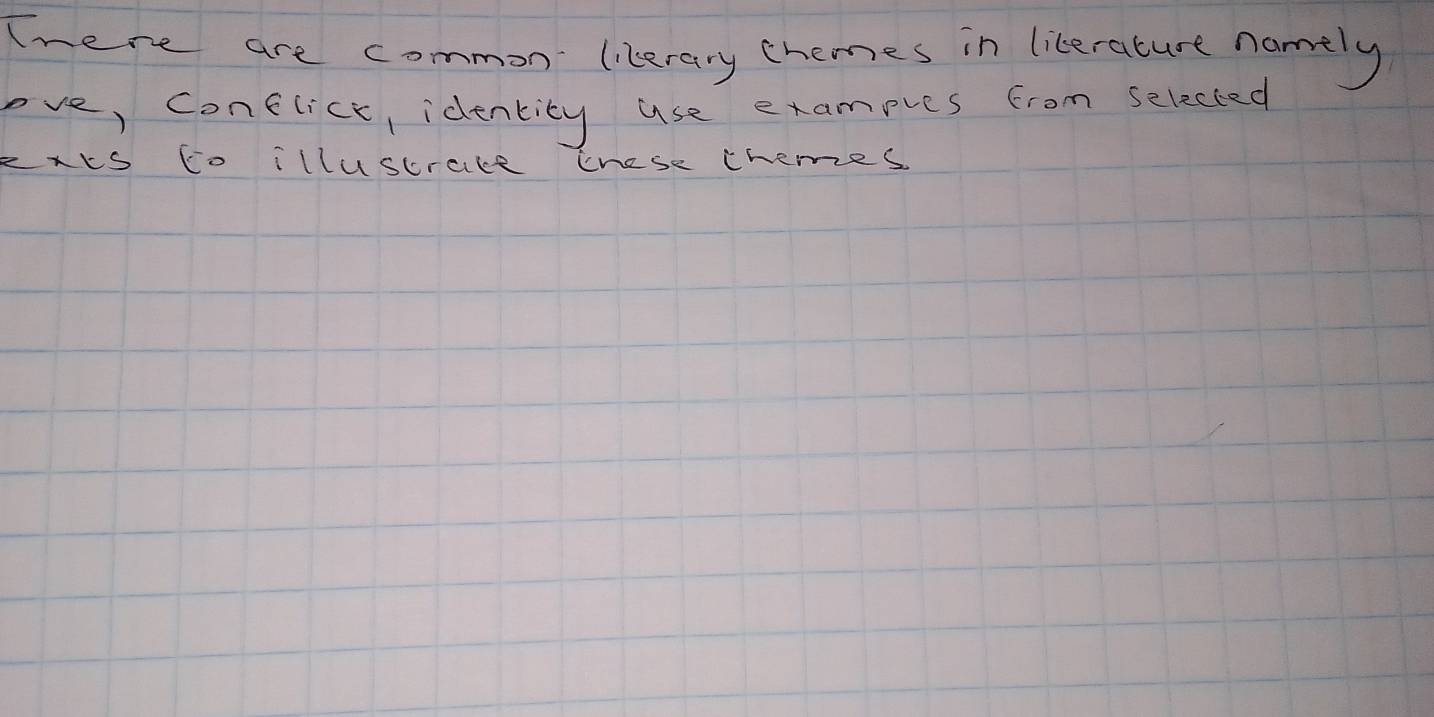 There are common literary themes in literature namely
ove, conflict, identity use examples from selected
exts to illustrate these themes.